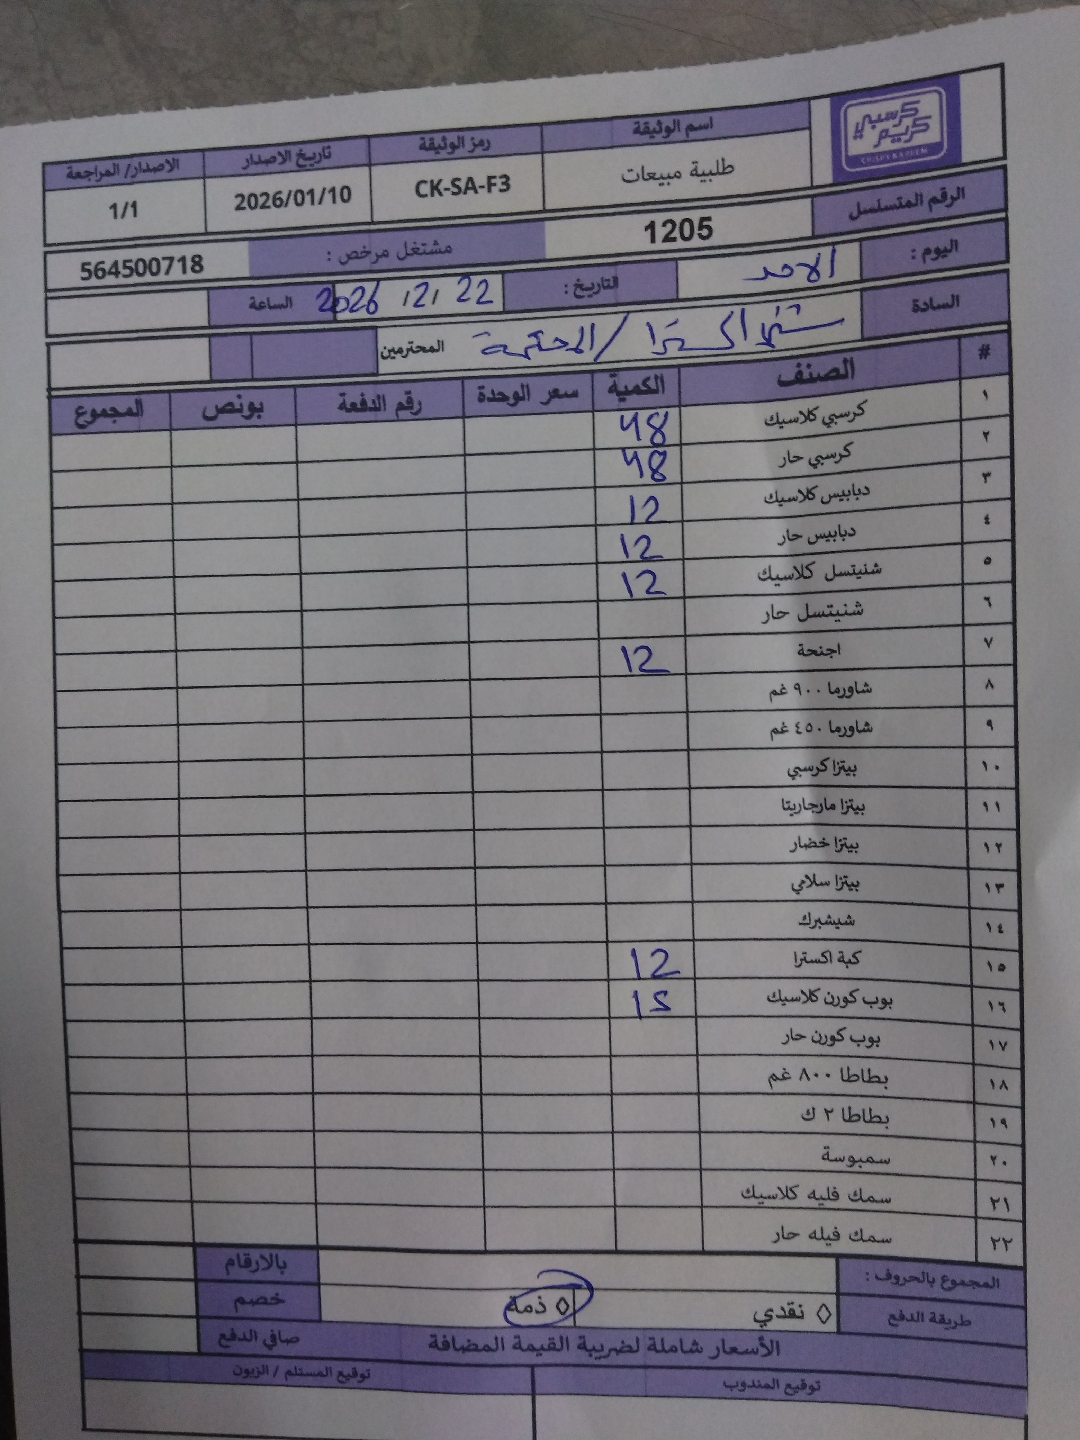 كرسبي كريم
CRISPY KAREEM
اسم الوثيقة رمز الوثيقة تاريخ الاصدار الاصدار/ المراجعة
طلبية مبيعات CK-SA-F3 2026/01/10 1/1
الرقم المتسلسل 1205 مشتغل مرخص : 564500718
اليوم : الاحد التاريخ : 22 /2/ 2026 الساعة
السادة اكسترا / المحترمة المحترمين
# الصنف الكمية سعر الوحدة رقم الدفعة بونص المجموع
١ كرسبي كلاسيك 48
٢ كرسبي حار 48
٣ دبابيس كلاسيك 12
٤ دبابيس حار 12
٥ شنيتسل كلاسيك 12
٦ شنيتسل حار
٧ اجنحة 12
٨ شاورما ٩٠٠ غم
٩ شاورما ٤٥٠ غم
١٠ بيتزا كرسبي
١١ بيتزا مارجاريتا
١٢ بيتزا خضار
١٣ بيتزا سلامي
١٤ شيشبرك
١٥ كبة اكسترا 12
١٦ بوب كورن كلاسيك 12
١٧ بوب كورن حار
١٨ بطاطا ٨٠٠ غم
١٩ بطاطا ٢ ك
٢٠ سمبوسة
٢١ سمك فليه كلاسيك
٢٢ سمك فيله حار
المجموع بالحروف : بالارقام
طريقة الدفع ◊ نقدي ◊ ذمة خصم
الأسعار شاملة لضريبة القيمة المضافة صافي الدفع
توقيع المندوب توقيع المستلم / الزبون